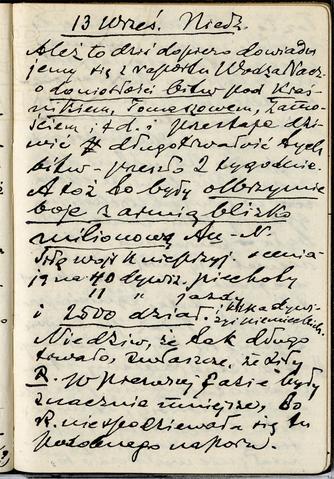 13 Wrześ. Niedz.
Ależ to dziś dopiero dowiadu
jemy się z raportu Wodza Nacz.
o doniosłości bitw pod Kraś-
nikiem, Tomaszowem, Zamo-
ściem i t d. i przestaję dzi-
wić długotrwałość tych
bitw – przeszło 2 tygodnie.
A toż to były olbrzymie
boje z armią blizko
milionową Au – N.
Siłę wojsk nieprzyj. ocenia-
ją na 40 dywiz. piechoty
11 " jazdy
i 2500 dział. i kilka dywi-
zyi niemieckich.
Nie dziw, że tak długo
trwało, zwłaszcza, że siły
R. w pierwszej fazie były
znacznie mniejsze, bo
R. nie spodziewała się tu
podobnego naporu.